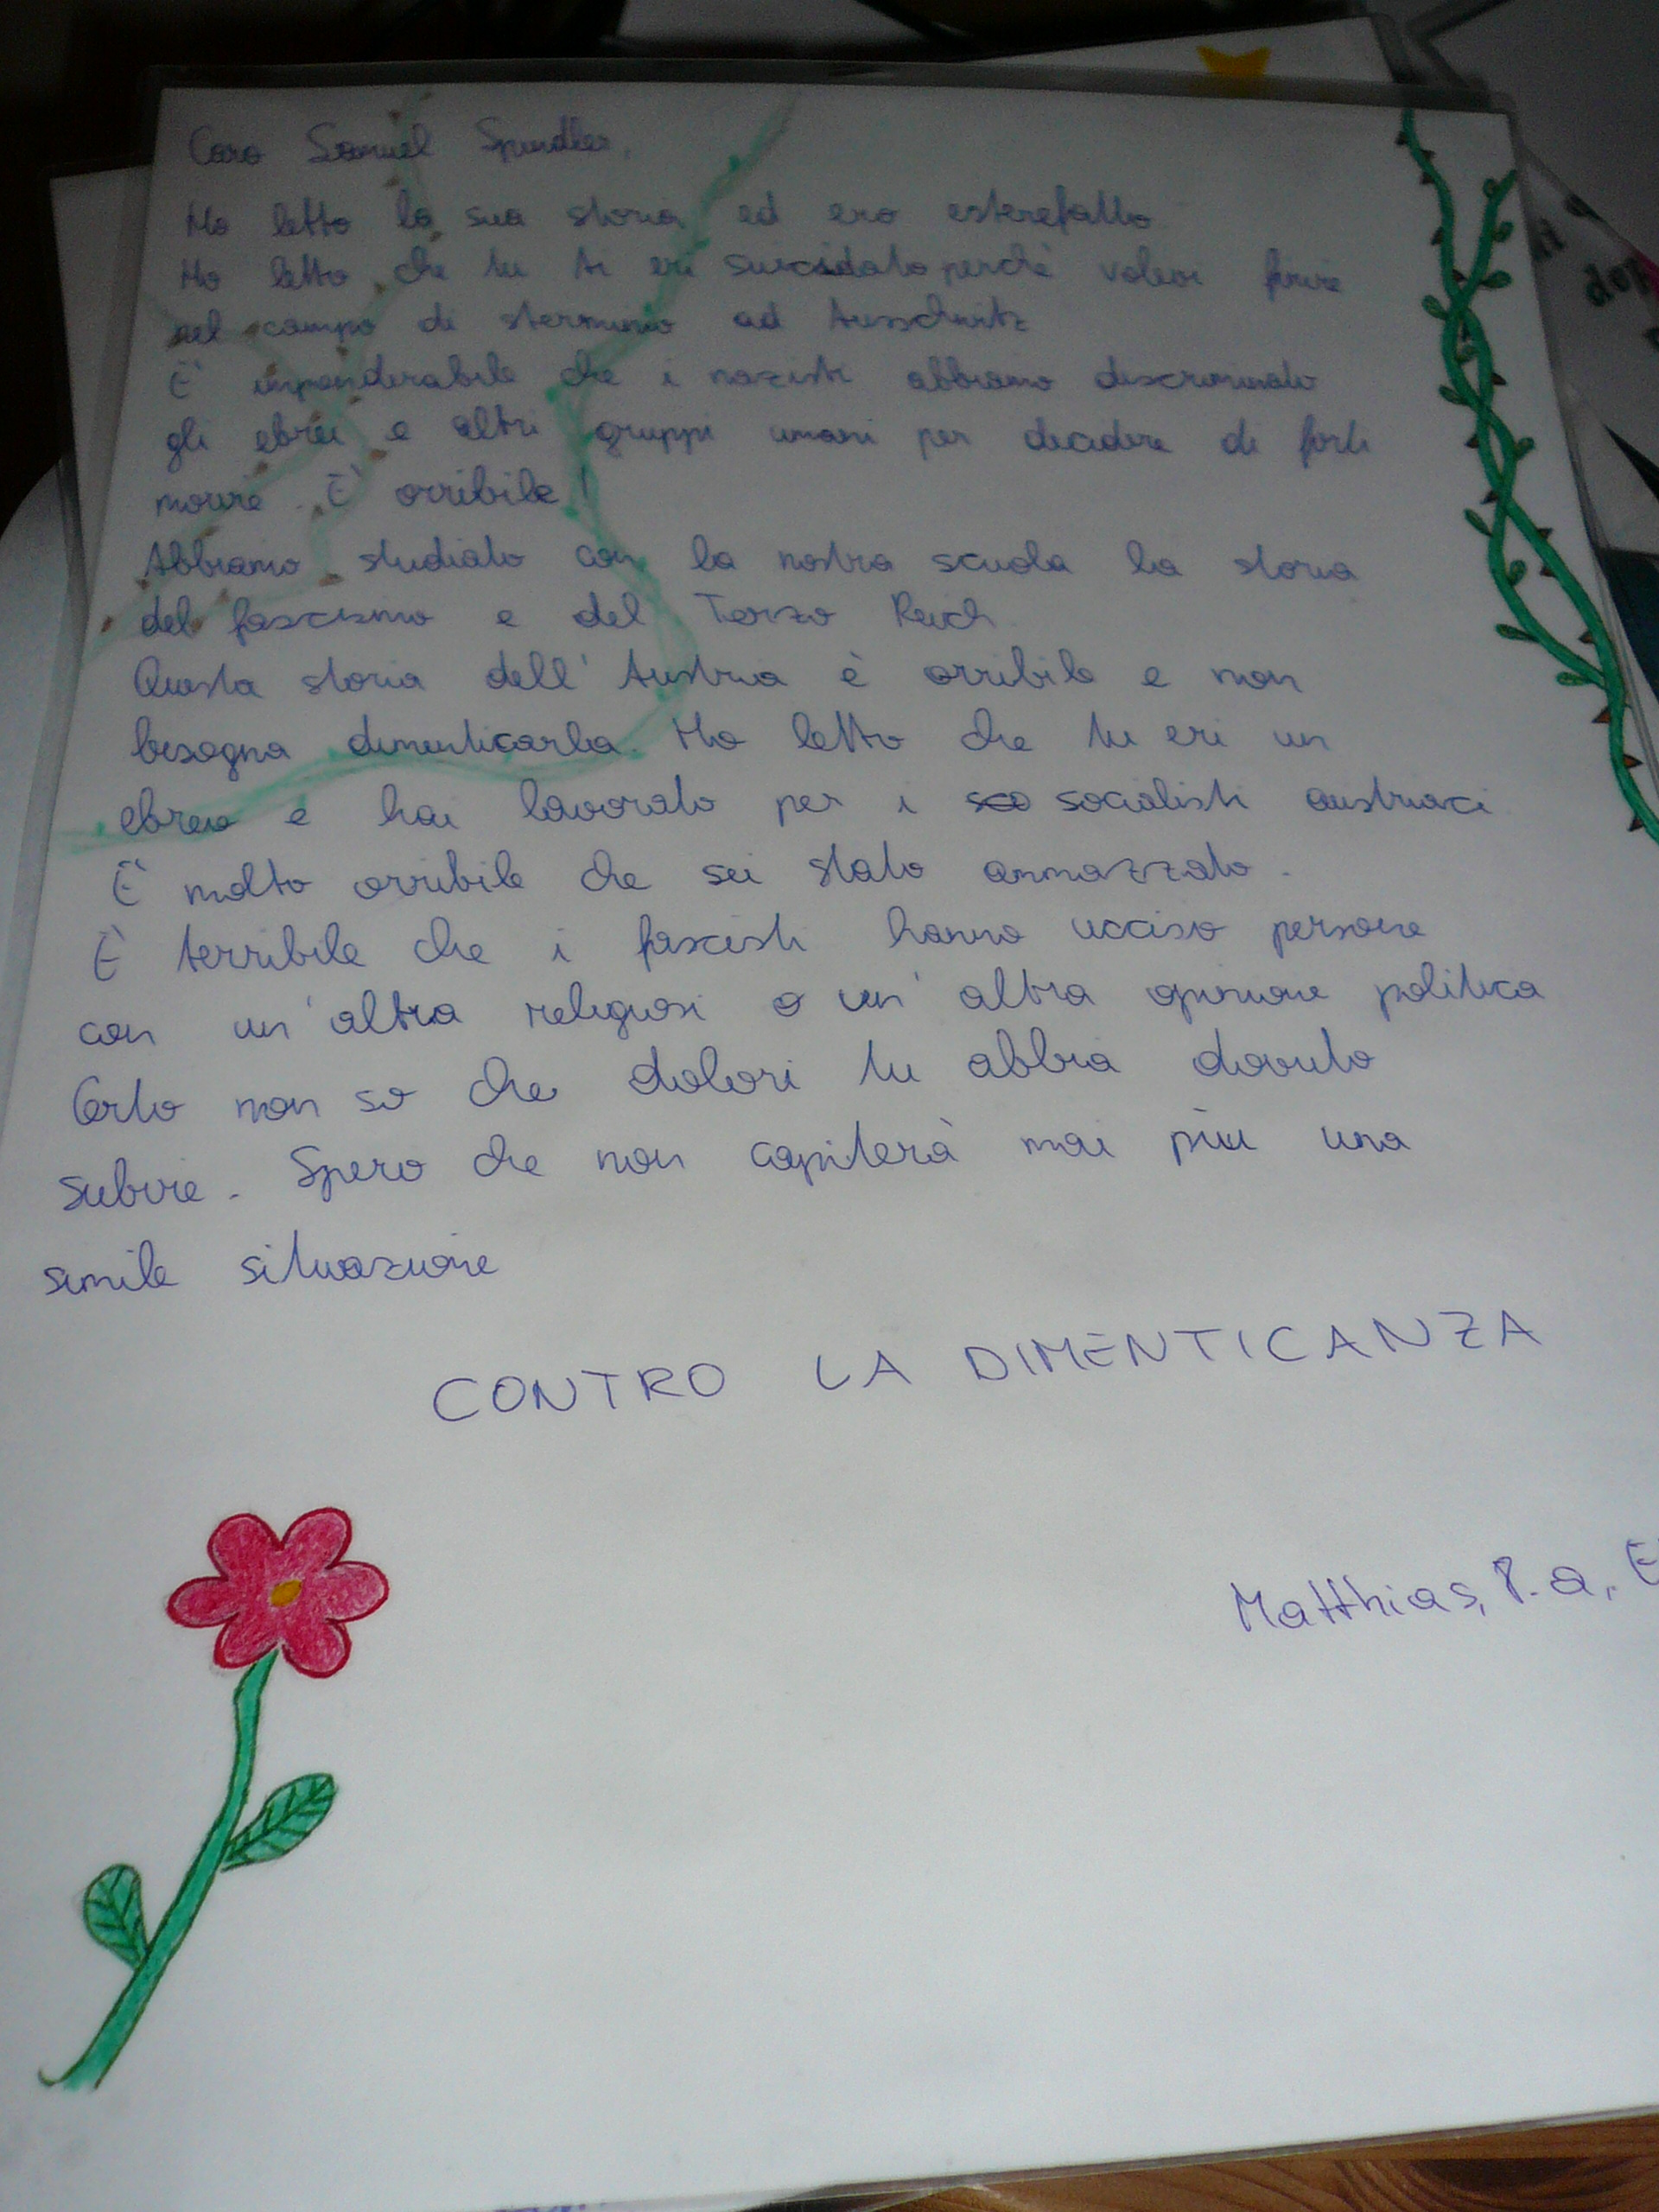 Caro Samuel Spindler,
Ho letto la sua storia ed ero esterefatto
Ho letto che tu ti eri suicidato perchè volevi finire
nel campo di sterminio ad Ausschwitz
È impenderabile che i nazisti abbiamo discriminato
gli ebrei e altri gruppi umani per decidere di farli
morire. È orribile!
Abbiamo studiato con la nostra scuola la storia
del fascismo e del Terzo Reich
Questa storia dell'Austria è orribile e non
bisogna dimenticarla. Ho letto che tu eri un
ebreo e hai lavorato per i socialisti austriaci
È molto orribile che sei stato ammazzato.
È terribile che i fascisti hanno ucciso persone
con un'altra religiosi o un'altra opinione politica
Certo non so che dolori tu abbia dovuto
subire. Spero che non capiterà mai più una
simile situazione
CONTRO LA DIMENTICANZA
Matthias,
dop